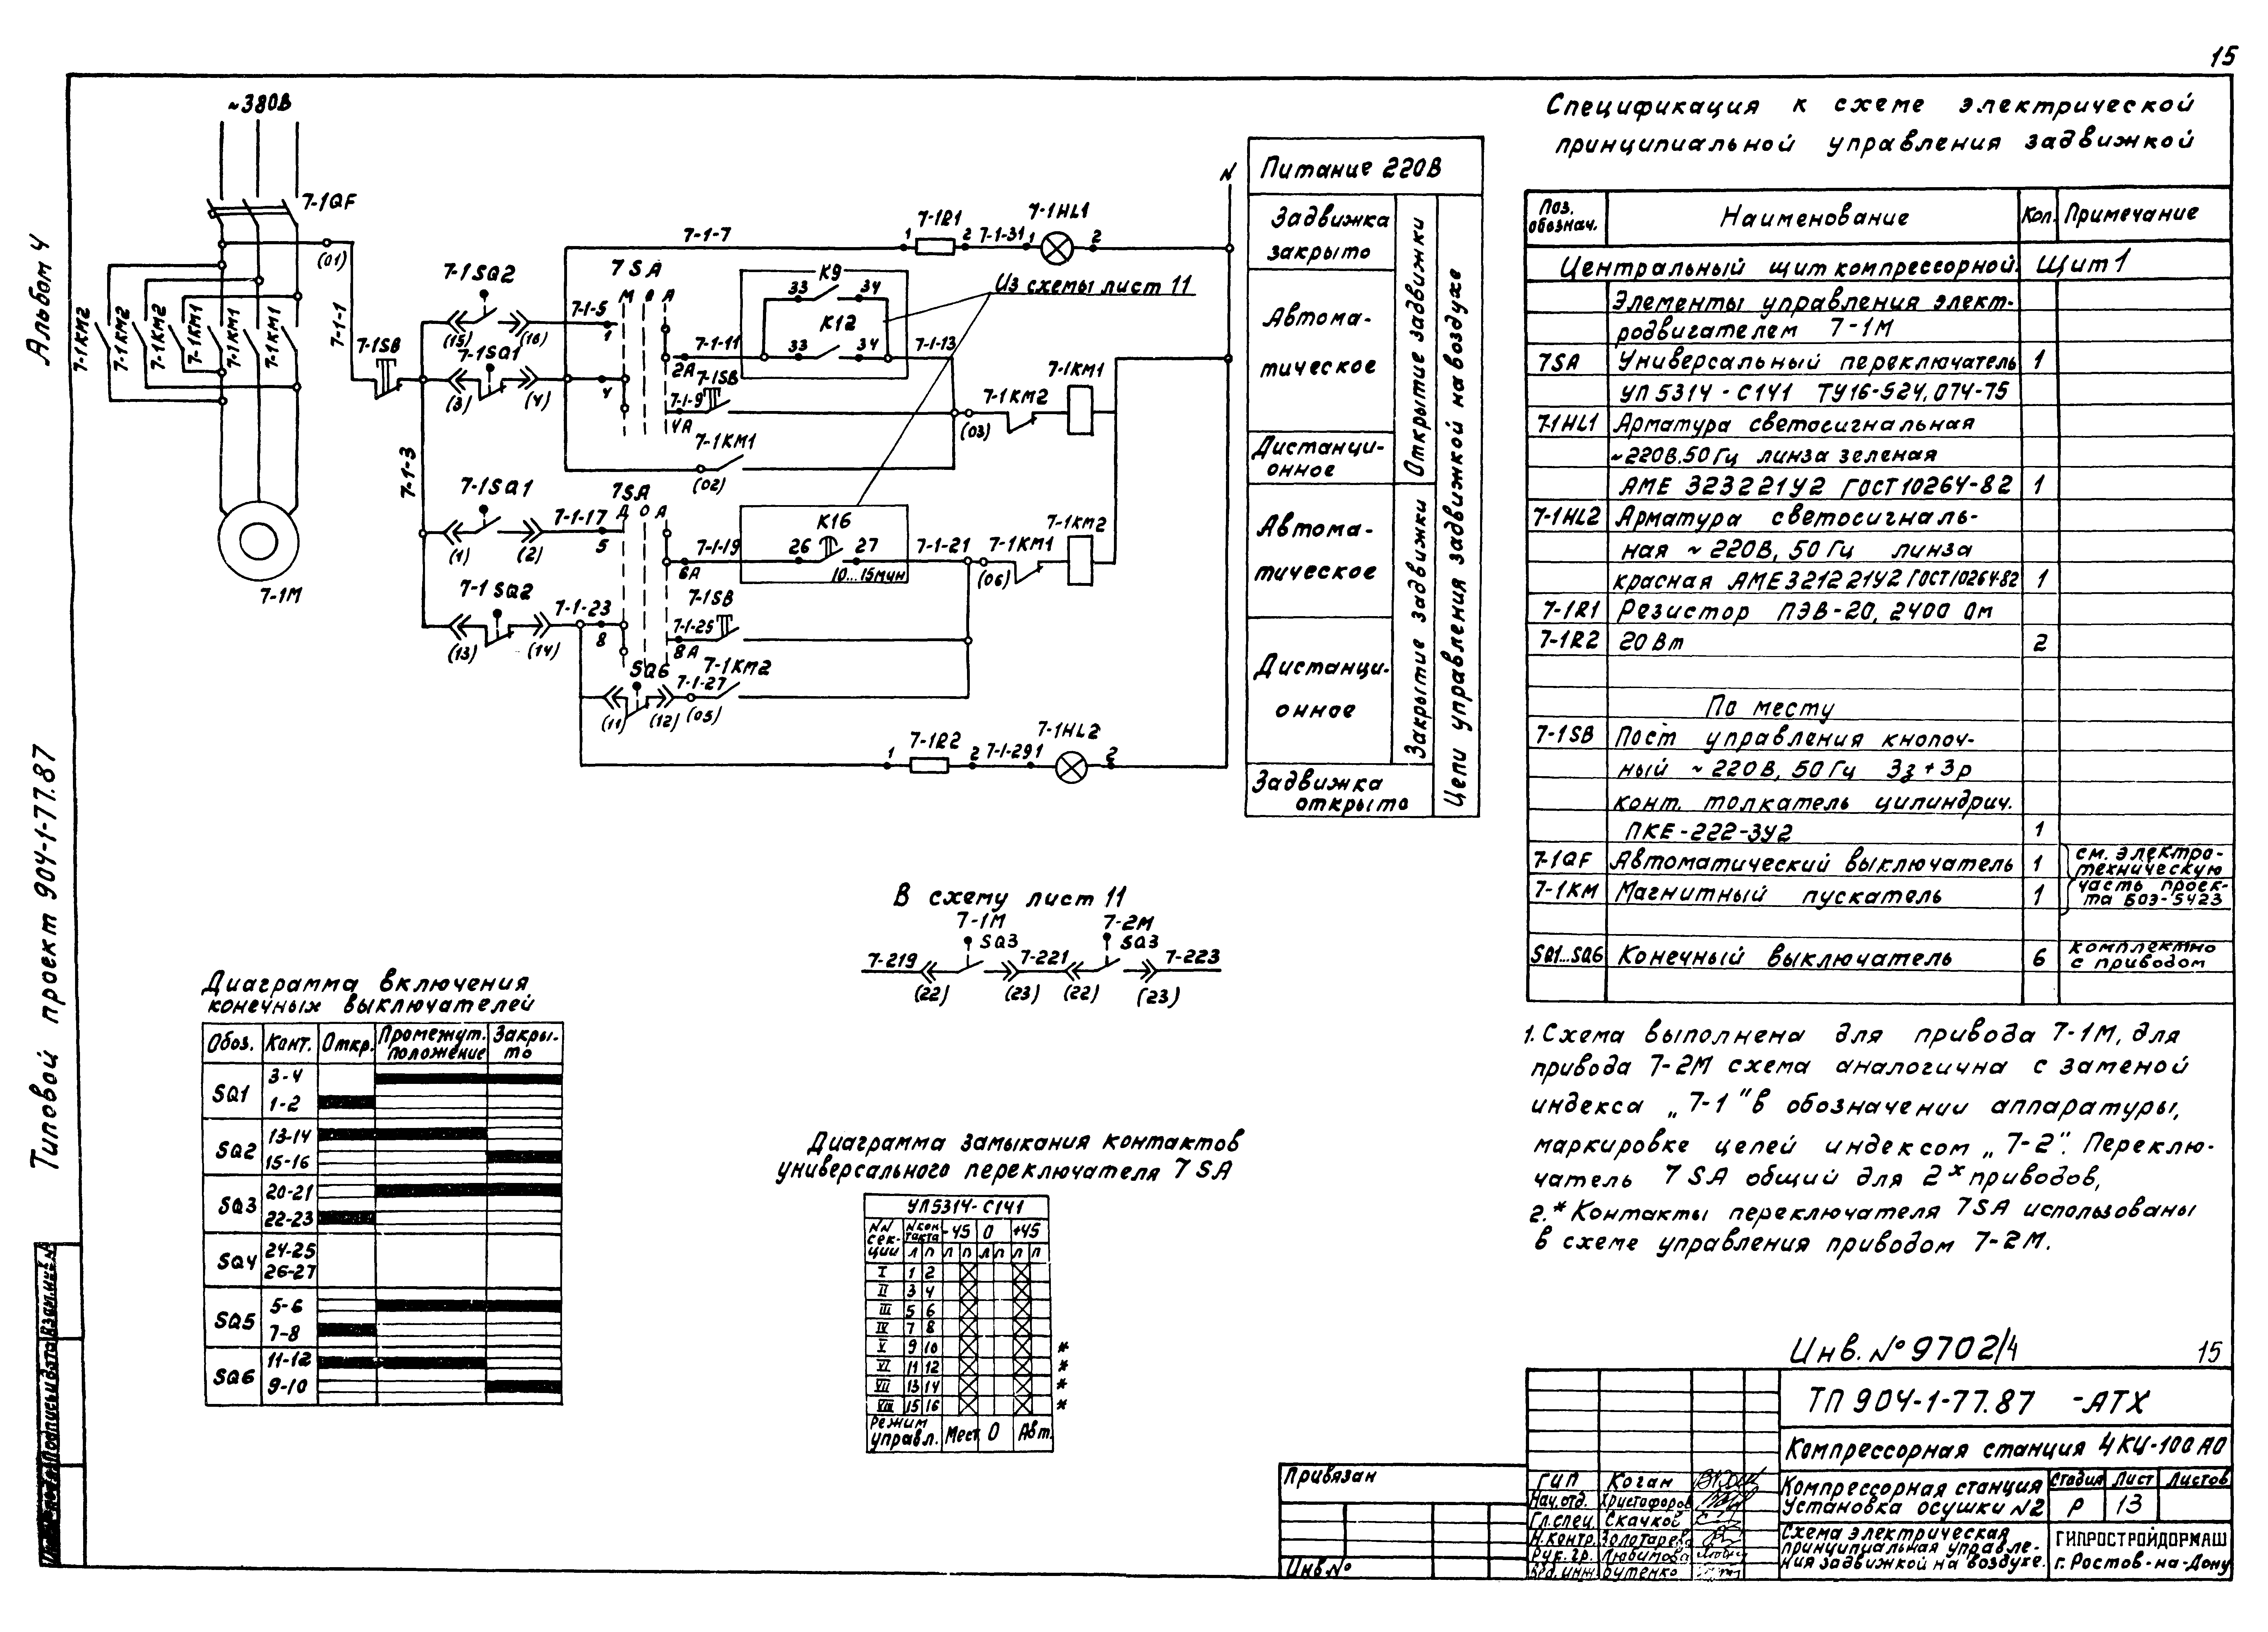 15
Альбом 4
Типовой проект 904-1-77.87
~380В
7-1QF
(01)
7-1-1
7-1КМ2
7-1КМ2
7-1КМ2
7-1КМ1
7-1КМ1
7-1КМ1
7-1М
7-1SB
7-1-3
7-1SQ2
(15)
(16)
7-1-5
1
7-1SQ1
(3)
(4)
4
7SA
М О А
7-1-7
1
7-1R1
2
7-1-31
1
7-1HL1
2
N
К9
33
34
К12
33
34
Из схемы лист 11
7-1-11
2А
7-1-13
7-1SB
7-1-9
4А
7-1КМ1
(02)
(03)
7-1КМ2
7-1КМ1
7-1SQ1
(1)
(2)
7-1-17
5
7SA
Д О А
7-1-19
6А
К16
26
27
10...15мин
7-1-21
(06)
7-1КМ1
7-1КМ2
7-1SQ2
(13)
(14)
7-1-23
8
7-1SB
7-1-25
8А
SQ6
(11)
(12)
7-1-27
(05)
7-1КМ2
1
7-1R2
2
7-1-29
1
7-1HL2
2
Питание 220В
Задвижка
закрыто
Автома-
тическое
Дистанци-
онное
Автома-
тическое
Дистанци-
онное
Задвижка
открыто
Открытие задвижки
Закрытие задвижки
Цепи управления задвижкой на воздухе
В схему лист 11
7-1М
7-2М
SQ3
SQ3
7-219
7-221
7-223
(22)
(23)
(22)
(23)
Диаграмма включения
конечных выключателей
Обоз. Конт. Откр. Промежут. положение Закры-то
SQ1 3-4
1-2
SQ2 13-14
15-16
SQ3 20-21
22-23
SQ4 24-25
26-27
SQ5 5-6
7-8
SQ6 11-12
9-10
Диаграмма замыкания контактов
универсального переключателя 7SA
УП5314-С141
NN сек-ции N кон-такта -45 0 +45
Л П Л П Л П Л П
I 1 2
II 3 4
III 5 6
IV 7 8
V 9 10 *
VI 11 12 *
VII 13 14 *
VIII 15 16 *
Режим управл. Мест 0 Авт.
Спецификация к схеме электрической
принципиальной управления задвижкой
Поз. обознач. Наименование Кол. Примечание
Центральный щит компрессорной. Щит 1
Элементы управления элект-
родвигателем 7-1М
7SA Универсальный переключатель 1
УП 5314-С141 ТУ16-524.074-75
7-1HL1 Арматура светосигнальная
~220В,50Гц линза зеленая
АМЕ 323221У2 ГОСТ 10264-82 1
7-1HL2 Арматура светосигналь-
ная ~220В, 50Гц линза
красная АМЕ321221У2 ГОСТ10264-82 1
7-1R1 Резистор ПЭВ-20, 2400 Ом
7-1R2 20Вт 2
По месту
7-1SB Пост управления кнопоч-
ный ~220В, 50Гц 3з+3р
конт. толкатель цилиндрич.
ПКЕ-222-3У2 1
7-1QF Автоматический выключатель 1 см. электро-
техническую
7-1КМ Магнитный пускатель 1 часть проек-
та БОЭ-5423
SQ1...SQ6 Конечный выключатель 6 комплектно
с приводом
1. Схема выполнена для привода 7-1М, для
привода 7-2М схема аналогична с заменой
индекса „7-1" в обозначении аппаратуры,
маркировке цепей индексом „7-2". Переклю-
чатель 7SA общий для 2х приводов,
2.* Контакты переключателя 7SA использованы
в схеме управления приводом 7-2М.
Инв. № 9702/4
15
ТП 904-1-77.87 -АТХ
Компрессорная станция 4КЦ-100АО
Компрессорная станция
Установка осушки N2
Стадия Лист Листов
Р 13
Схема электрическая
принципиальная управле-
ния задвижкой на воздухе.
ГИПРОСТРОЙДОРМАШ
г. Ростов-на-Дону
ГИП Коган
Нач.отд. Христофоров
Гл.спец. Скачков
Н.контр. Золотарева
Рук.гр. Любимова
Вед.инж. Бутенко
Привязан
Инв №
Подпись и дата
Взам.инв.N